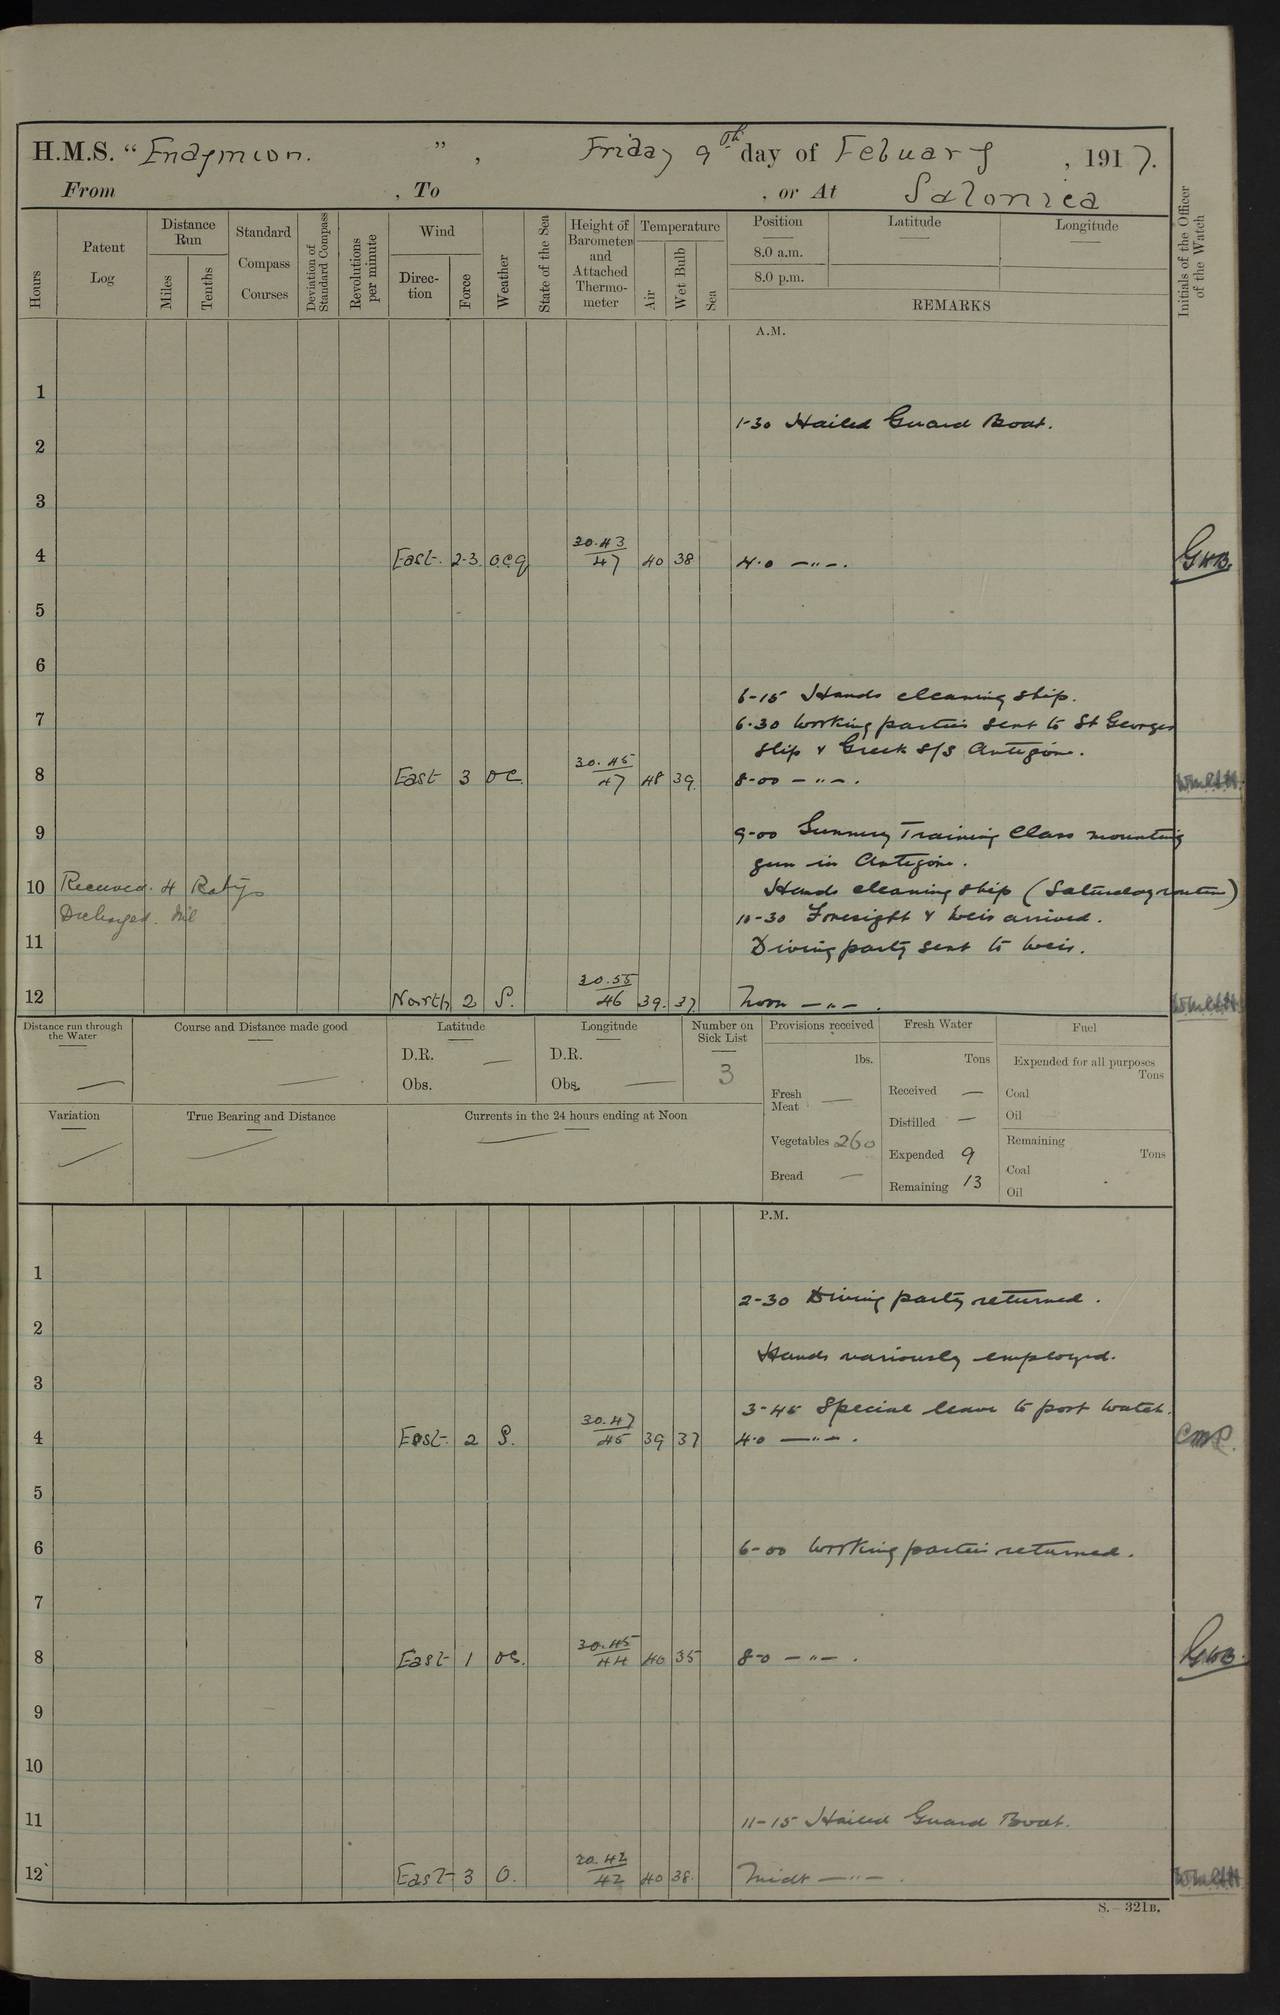 H.M.S. "Endymion. ", Friday 9th day of Febuary, 1917.
From , To , or At Salonica
Hours
Patent Log
Distance Run
Miles
Tenths
Standard Compass Courses
Deviation of Standard Compass
Revolutions per minute
Wind
Direction
Force
Weather
State of the Sea
Height of Barometer and Attached Thermometer
Temperature
Air
Wet Bulb
Sea
Position
8.0 a.m.
8.0 p.m.
Latitude
Longitude
REMARKS
Initials of the Officer of the Watch
A.M.
1
1-30 Hailed Guard Boat.
2
3
4 East. 2-3 o.c.q 30.43/47 40 38 4.0 —"—. GWB.
5
6
6-15 Hands cleaning ship.
7 6.30 Working parties sent to St Georges
ship & Greek S/S Antigone.
8 East 3 oc 30.45/47 48 39. 8-00 —"—.
9 9-00 Gunnery Training Class mounting
gun in Antigone.
10 Received. 4 Ratgs Hands cleaning ship (Saturday routine)
Discharged. Nil 10-30 Foresight & Weir arrived.
11 Diving party sent to Weir.
12 North 2 S. 30.55/46 39. 37. Noon —"—.
Distance run through the Water
Course and Distance made good
Latitude
D.R. —
Obs.
Longitude
D.R.
Obs. —
Number on Sick List
3
Provisions received
lbs.
Fresh Meat —
Vegetables 260
Bread —
Fresh Water
Tons
Received —
Distilled —
Expended 9
Remaining 13
Fuel
Expended for all purposes
Tons
Coal
Oil
Remaining
Tons
Coal
Oil
Variation
True Bearing and Distance
Currents in the 24 hours ending at Noon
P.M.
1
2-30 Diving party returned.
2
Hands variously employed.
3
3-45 Special leave to port watch.
4 East. 2 S. 30.47/45 39 37 4.0 —"—.
5
6 6-00 Working parties returned.
7
8 East 1 oc. 30.45/44 40 35 8-0 —"—. GWB.
9
10
11 11-15 Hailed Guard Boat.
12 East 3 O. 30.42/42 40 38. Midt —"—.
S.—321B.